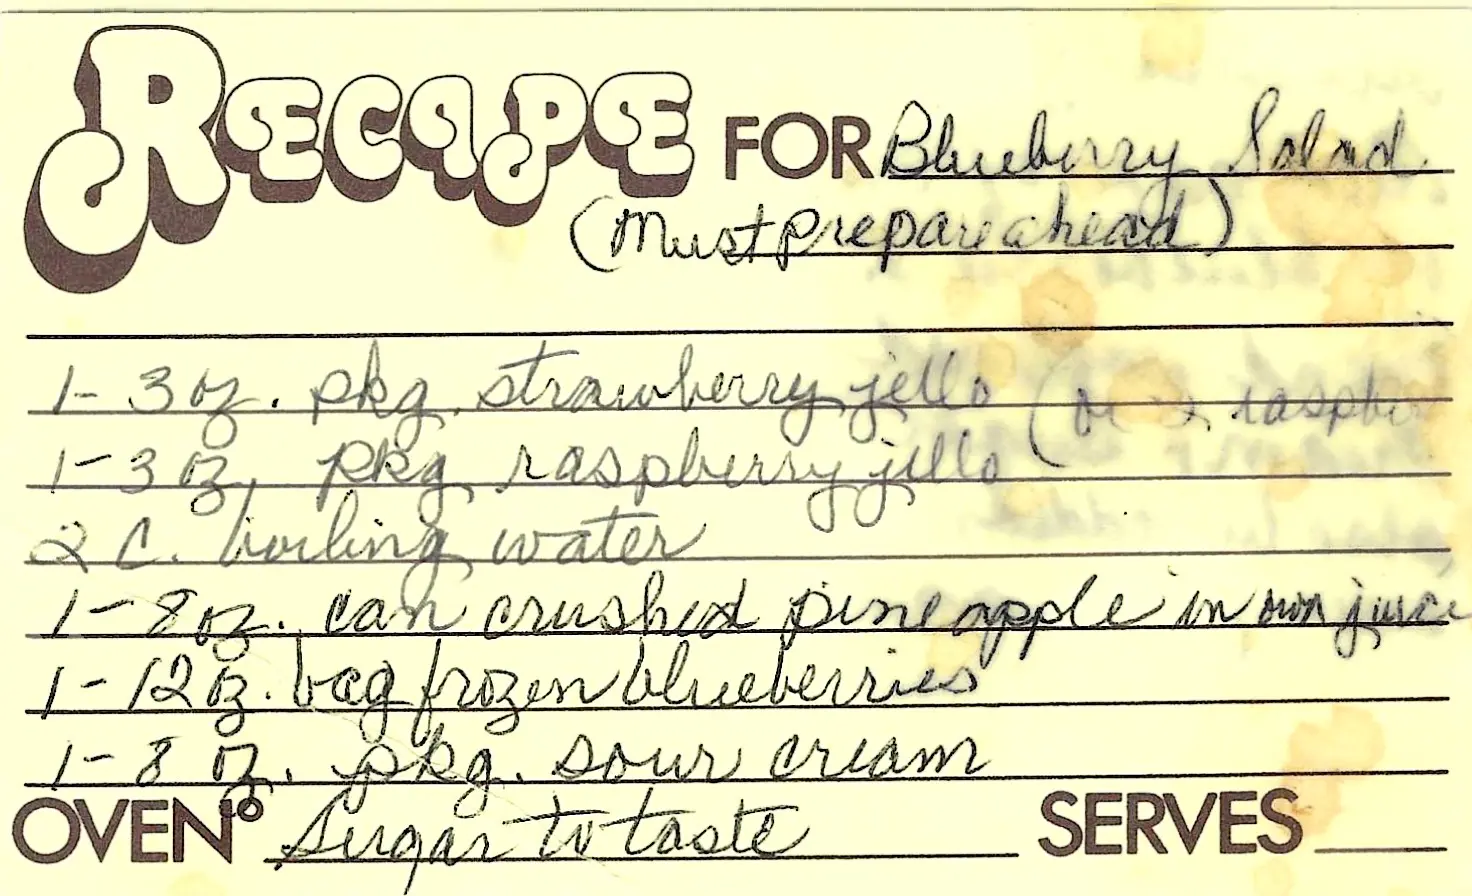 RECIPE FOR Blueberry Salad
(Must prepare ahead)
1- 3 oz. pkg. strawberry jello (or 2
1- 3 oz. pkg raspberry jello
2 C. boiling water
1- 8 oz. can crushed pineapple in own juice
1- 12 oz. bag frozen blueberries
1- 8 oz. pkg. sour cream
OVEN° Sugar to taste SERVES